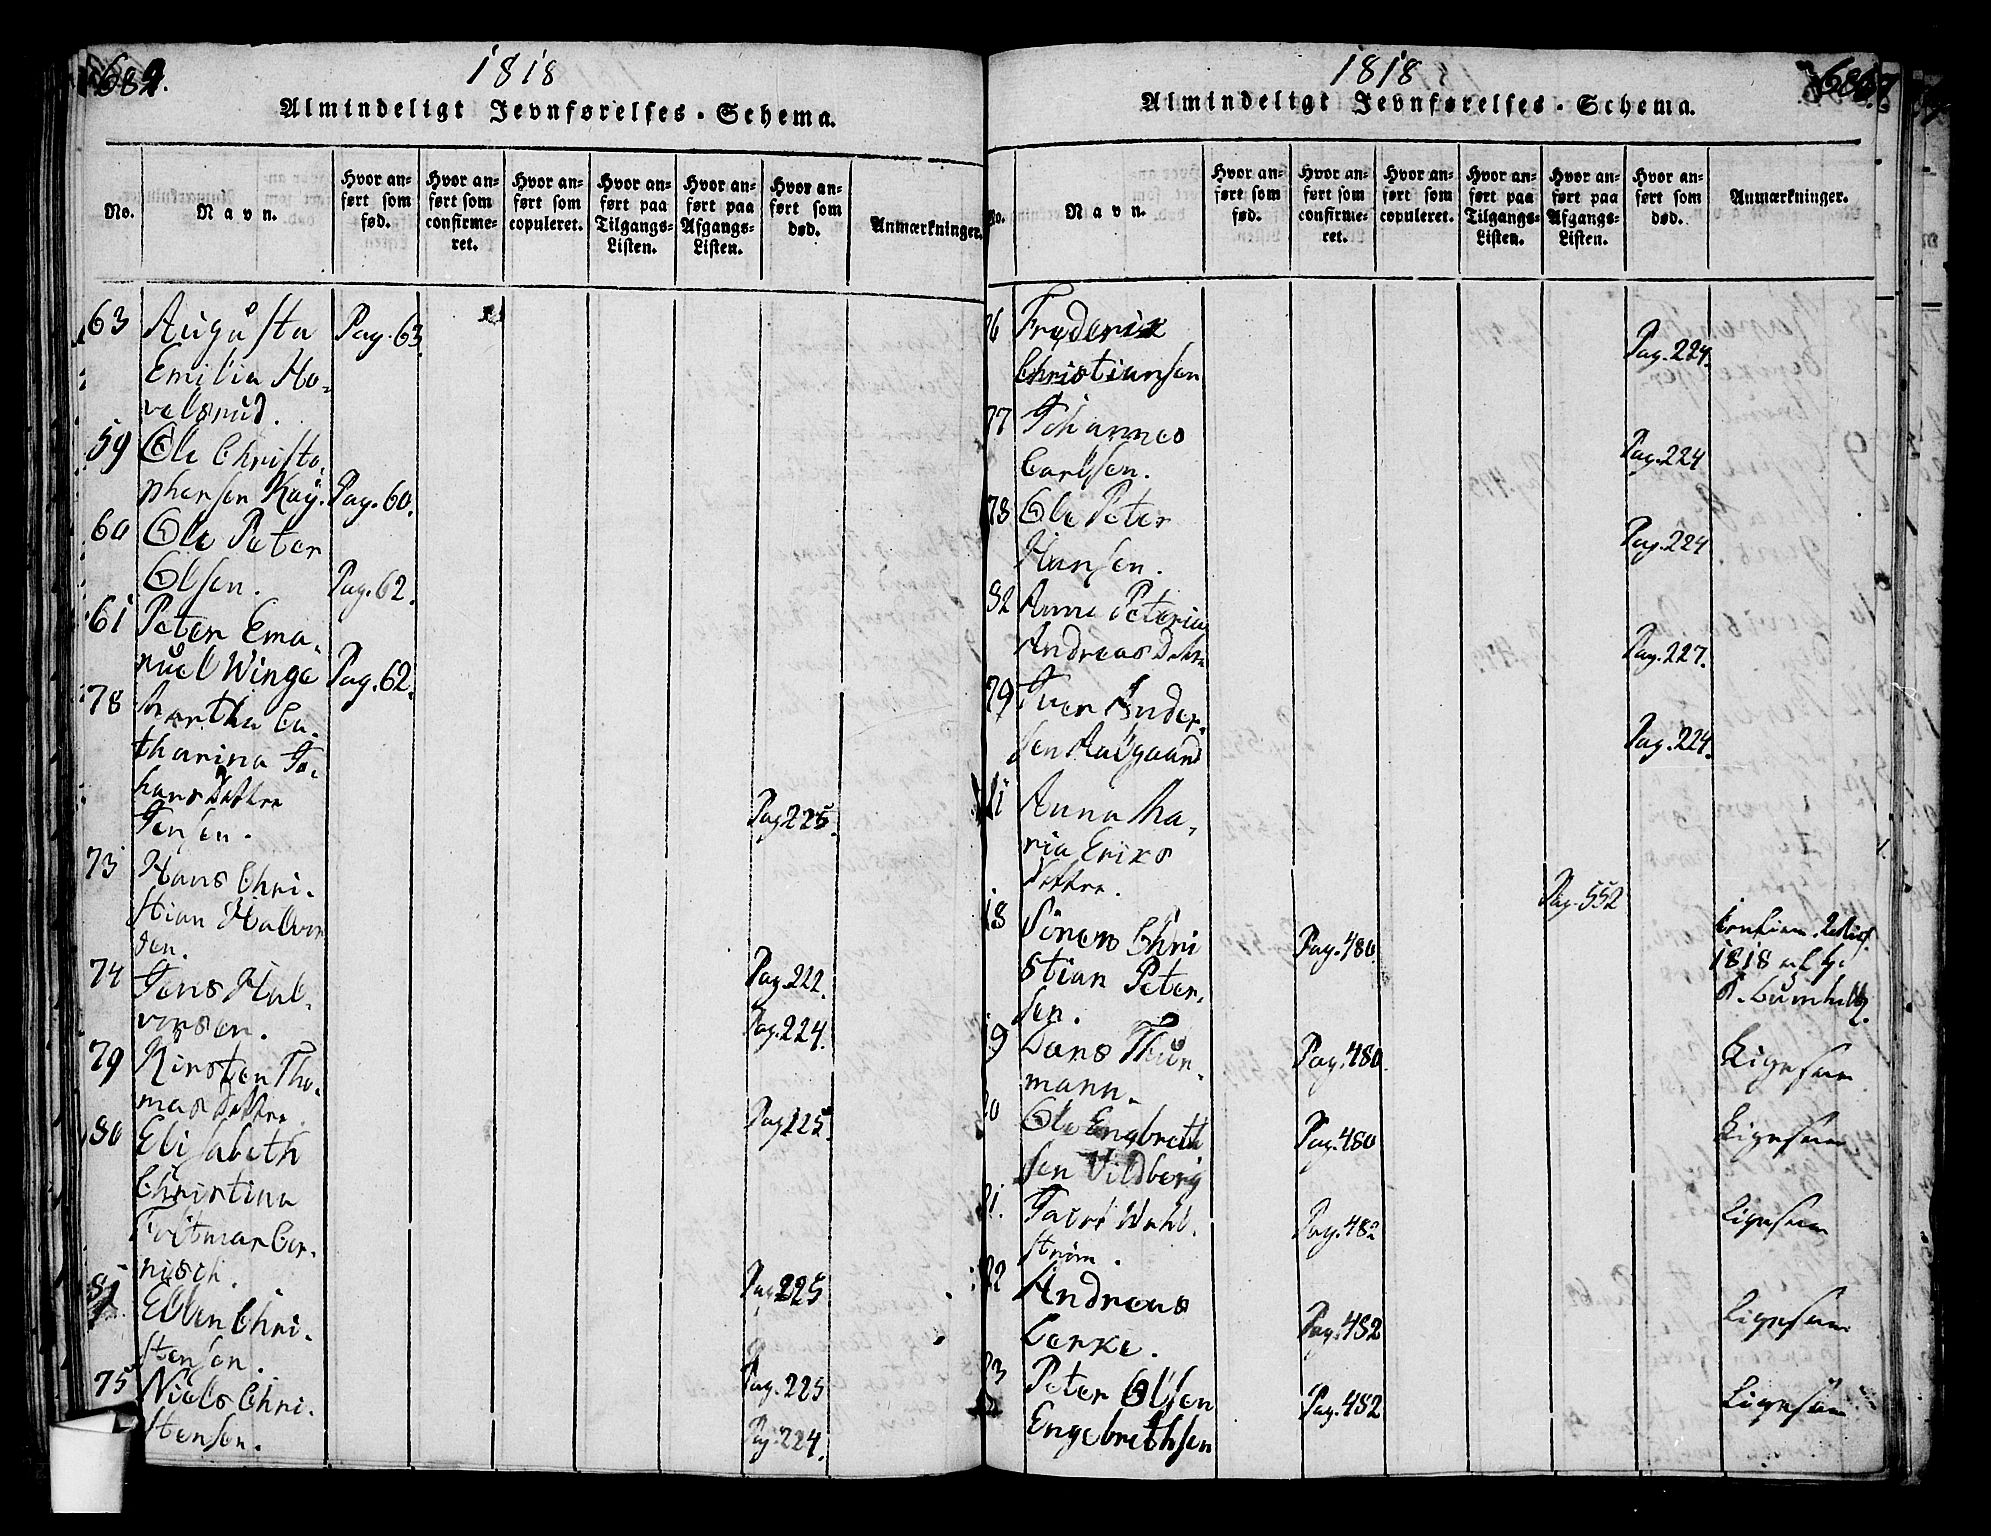 1818
Almindeligt Jevnførelses-Schema.
No.
Navn.
Hvor an-
ført som
fød.
Hvor an-
ført som
confirme-
ret.
Hvor an-
ført som
copuleret.
Hvor an-
ført paa
Tilgangs-
Listen.
Hvor an-
ført paa
Afgangs-
Listen.
Hvor an-
ført som
død.
Anmærkninger.
63 Augusta Pag. 63.
Emilia Ho-
velsrud.
59 Ole Christo-
phersen Kay. Pag. 60.
60 Ole Peter
Olsen. Pag. 62.
61 Peter Ema-
nuel Winge Pag. 62.
78 Martha Ca-
tharina Jo-
hansdatter
Jensen. Pag. 225.
73 Hans Chri-
stian Halvor
sen. Pag. 222.
74 Jens Hal-
vorsen. Pag. 224.
79 Kirsten Tho-
masdatter. Pag. 225.
80 Elisabeth
Christina
Cor-
nisch. Pag. 225
81 Ellen Chri-
stensen. Pag. 225
75 Niels Chri-
stensen. Pag. 224.
1818
Almindeligt Jevnførelses-Schema.
No.
Navn.
Hvor an-
ført som
fød.
Hvor an-
ført som
confirme-
ret.
Hvor an-
ført som
copuleret.
Hvor an-
ført paa
Tilgangs-
Listen.
Hvor an-
ført paa
Afgangs-
Listen.
Hvor an-
ført som
død.
Anmærkninger.
76 Frederik Pag. 224.
Christiansen
77 Johannes
Carlsen. Pag. 224
78 Ole Peter
Hansen. Pag. 224
82 Anne Peterina
Andreas Datter Pag. 227.
79 Iver Ander-
sen Aalgaard Pag. 224.
11 Anna Ma-
ria Eriks
datter. Pag. 552
18 Sören Chri Pag. 480.
stian Peter- 1818 af Hr.
sen. P. Lumholtz.
19 Lars Thur- Pag. 480. Ligesaa
mann.
20 Ole Engbreth Pag. 480 Ligesaa
sen Vildberg
21. Wahl- Pag. 482 Ligesaa
strøm.
22 Andreas
Lerke. Pag. 482 Ligesaa
23 Peter Olsen Pag. 482 Ligesaa
Engebrethsen